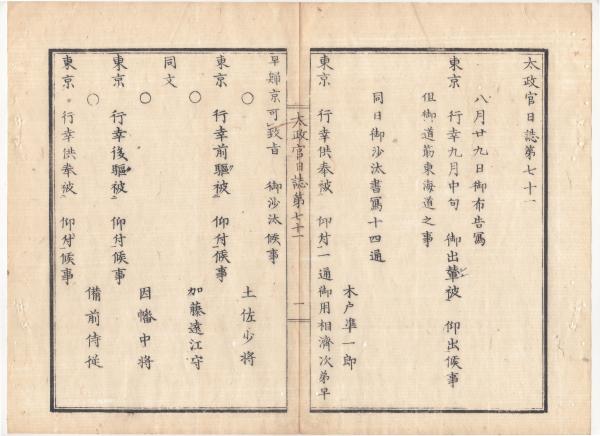 太政官日誌第七十一
八月廿九日御布告寫
東京 行幸九月中旬 御出輦被 仰出候事
但御道筋東海道之事
同日御沙汰書寫十四通
木戸準一郎
東京 行幸供奉被 仰付一通御用相濟次第早
太政官日誌第七十一 一
早歸京可致旨 御沙汰候事
○ 土佐少将
東京 行幸前驅被 仰付候事
○ 加藤遠江守
同文
○ 因幡中将
東京 行幸後驅被 仰付候事
○ 備前侍従
東京 行幸供奉被 仰付候事